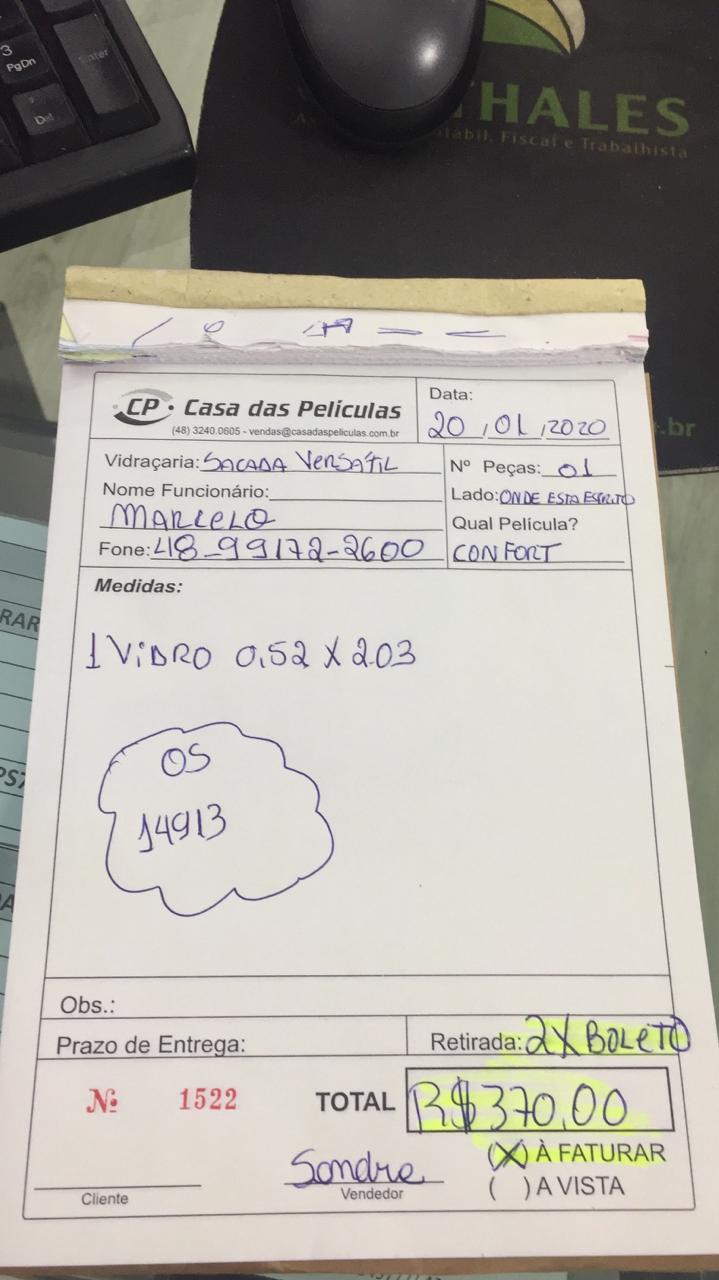 3
PgDn
Enter
Del
THALES
ábil, Fiscal e Trabalhista
.br
CP Casa das Películas
(48) 3240.0605 - vendas@casadaspeliculas.com.br
Data:
20 / 01 / 2020
Vidraçaria: SACADA VERSATIL
Nome Funcionário:
MARCELO
Fone: 48-99172-2600
Nº Peças: 01
Lado: ONDE ESTA ESCRITO
Qual Película?
CONFORT
Medidas:
1 VIDRO 0,52 X 2.03
OS
14913
Obs.:
Prazo de Entrega:
Retirada: 2X BOLETO
Nº 1522
TOTAL R$ 370,00
(X) À FATURAR
( ) A VISTA
Sandra
Cliente
Vendedor
RAR